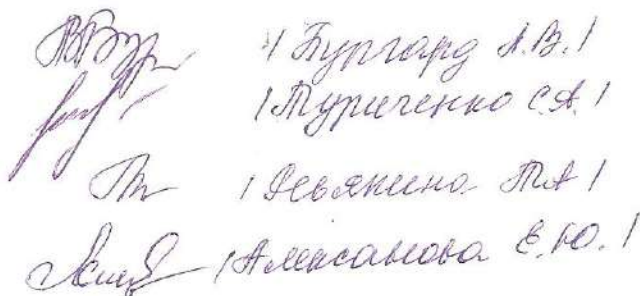 / Бургард А.В. /
/ Туриченко С.А. /
/ Девякина Т.А /
/ Алексанова Е.Ю. /